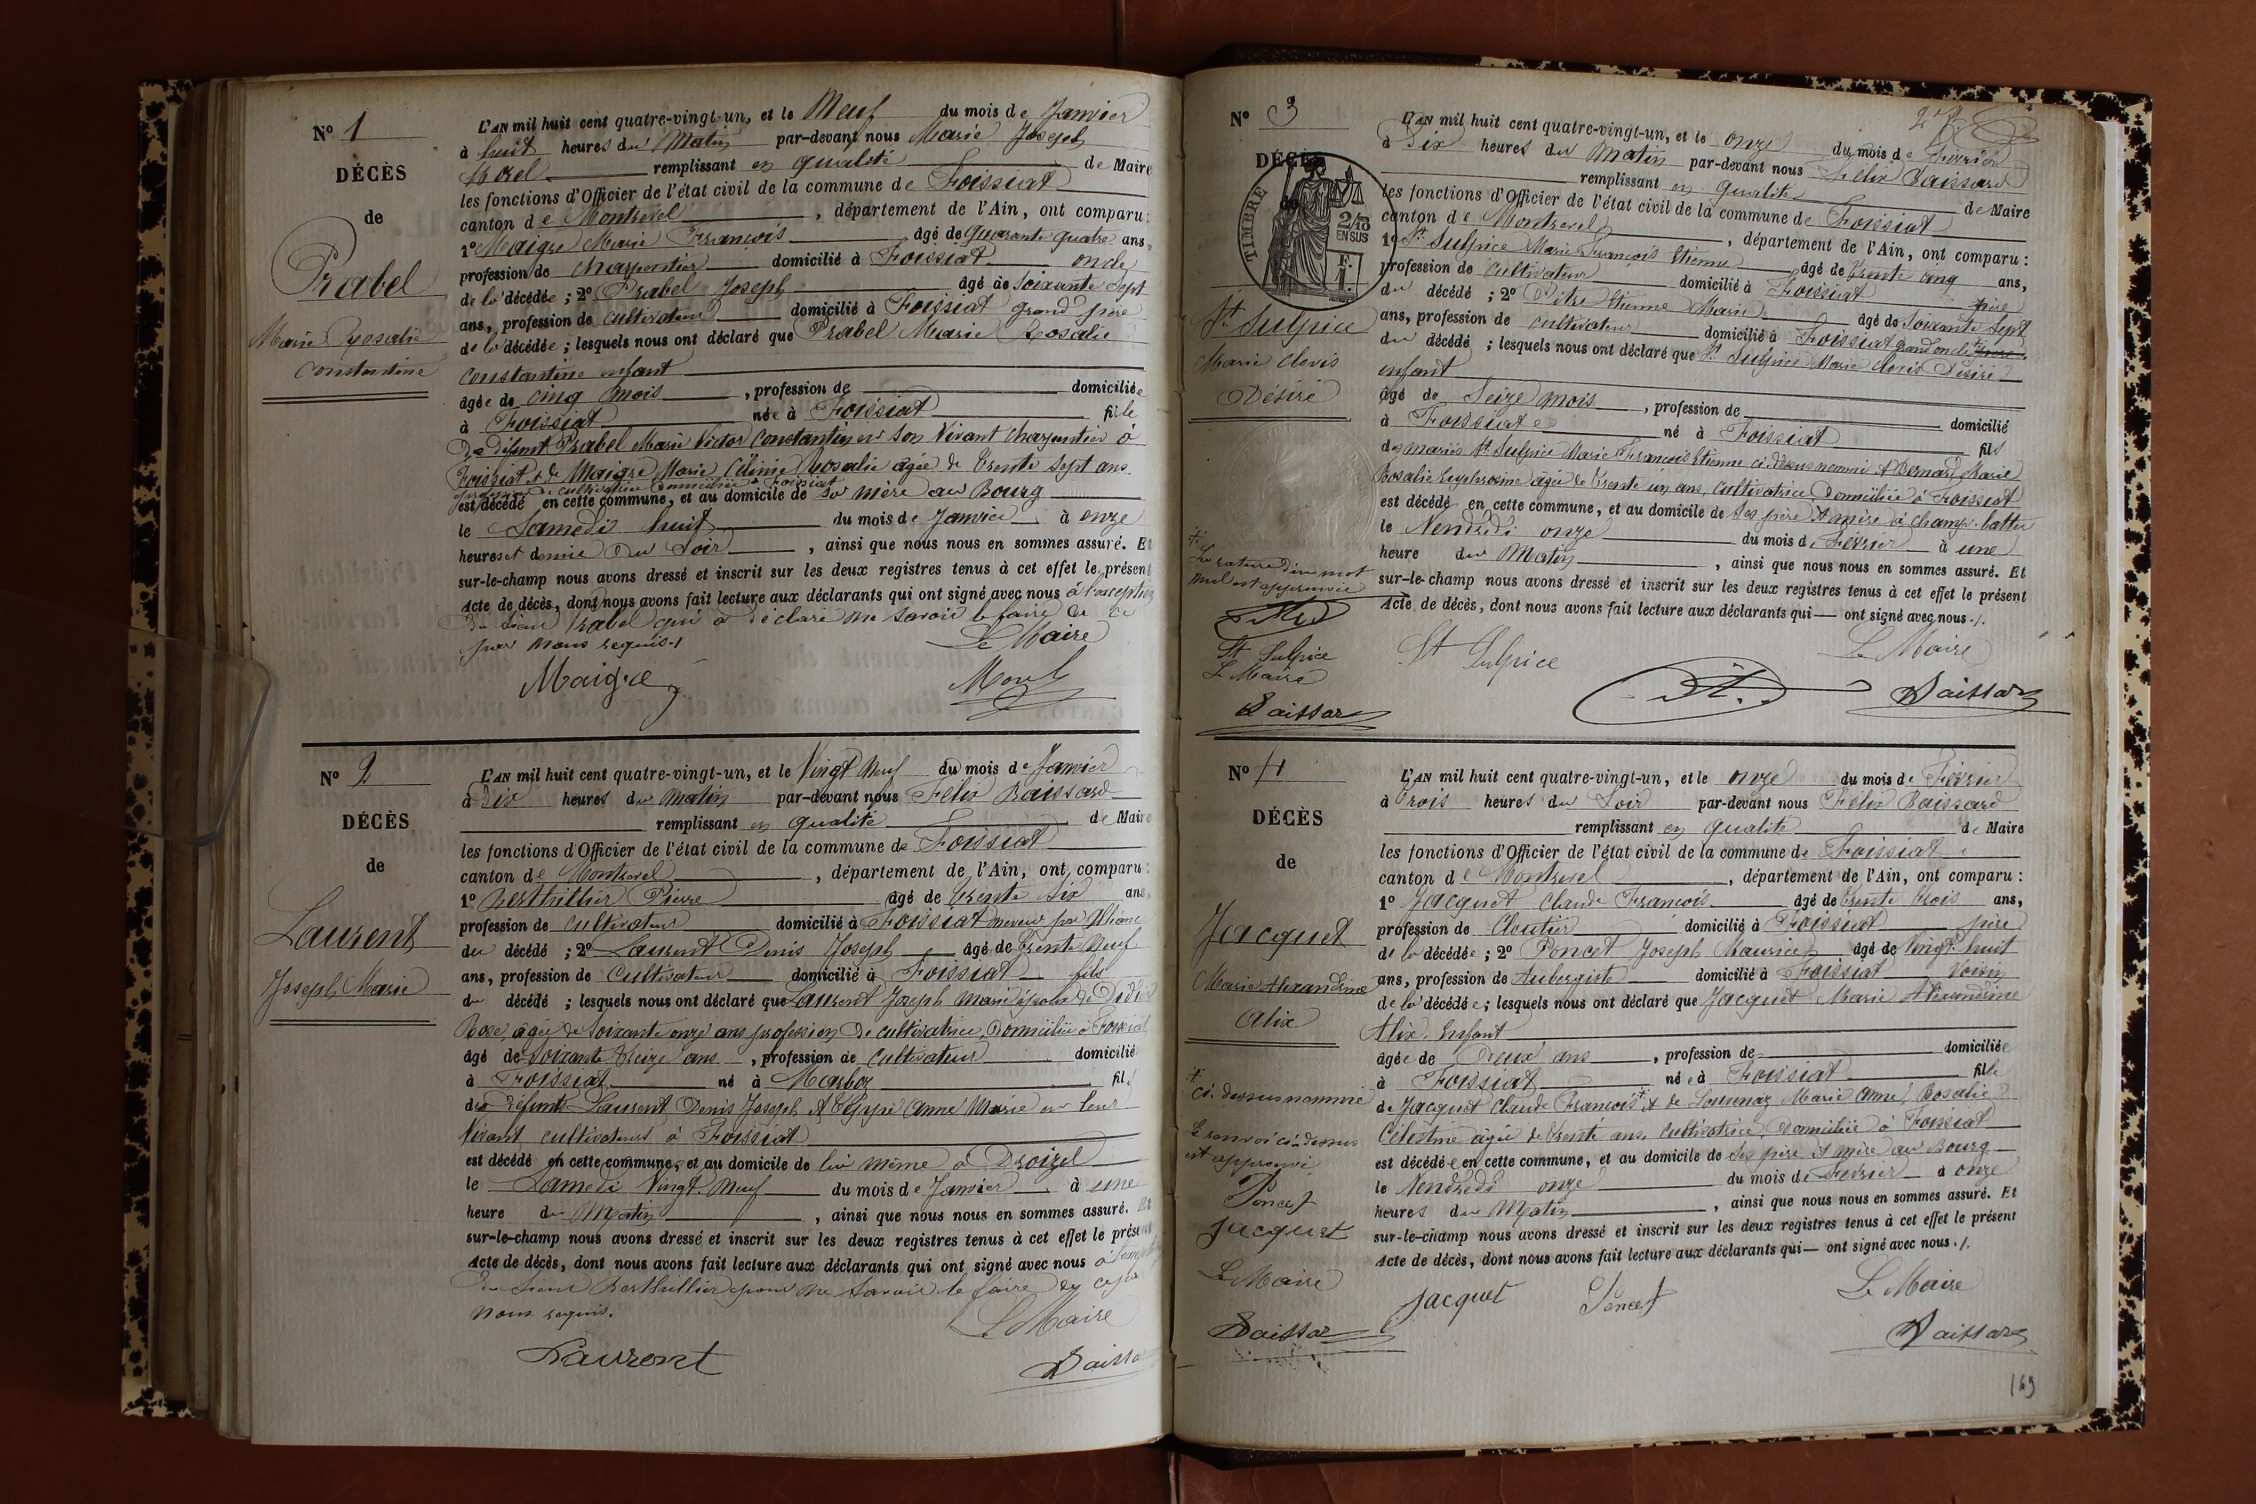 N° 1
DÉCÈS
de
Prabel
Marie Rosalie
Constantine
L'AN mil huit cent quatre-vingt-un, et le Neuf du mois de Janvier
à huit heures du Matin par-devant nous Marie Joseph
Morel remplissant en qualité de Maire
les fonctions d'Officier de l'état civil de la commune de Foissiat
canton de Montrevel, département de l'Ain, ont comparu :
1° Maigre Marie François âgé de quarante quatre ans,
profession de charpentier domicilié à Foissiat oncle
de la décédée ; 2° Prabel Joseph âgé de soixante sept
ans, profession de cultivateur domicilié à Foissiat grand père
de la décédée ; lesquels nous ont déclaré que Prabel Marie Rosalie
Constantine enfant
âgée de cinq mois, profession de domiciliée
à Foissiat née à Foissiat fille
de défunt Prabel Marie Victor Constantin en son vivant charpentier à
Foissiat & de Maigre Marie Célinie Rosalie âgée de trente sept ans
profession de cultivatrice domiciliée à Foissiat
est décédé en cette commune, et au domicile de sa mère au Bourg
le Samedi huit du mois de Janvier à onze
heures et demie du Soir, ainsi que nous nous en sommes assuré. Et
sur-le-champ nous avons dressé et inscrit sur les deux registres tenus à cet effet le présent
Acte de décès, dont nous avons fait lecture aux déclarants qui ont signé avec nous à l'exception
du sieur Prabel qui a déclaré ne savoir le faire de ce
par nous requis./.
Le Maire
Maigre Morel
N° 2
DÉCÈS
de
Laurent
Joseph Marie
L'AN mil huit cent quatre-vingt-un, et le Vingt Neuf du mois de Janvier
à Dix heures du Matin par-devant nous Félix Baissard
remplissant en qualité de Maire
les fonctions d'Officier de l'état civil de la commune de Foissiat
canton de Montrevel, département de l'Ain, ont comparu :
1° Berthillier Pierre âgé de trente six ans,
profession de cultivateur domicilié à Foissiat neveu par alliance
du décédé ; 2° Laurent Denis Joseph âgé de trente Neuf
ans, profession de Cultivateur domicilié à Foissiat fils
du décédé ; lesquels nous ont déclaré que Laurent Joseph Marie époux de
Rose, âgée de soixante onze ans profession de cultivatrice, domiciliée à Foissiat
âgé de soixante treize ans, profession de cultivateur domicilié
à Foissiat né à Marboz fils
des défunts Laurent Denis Joseph & Anne Marie en leur
vivant cultivateurs à Foissiat
est décédé en cette commune, et au domicile de lui même à
le Samedi Vingt Neuf du mois de Janvier à une
heure du Matin, ainsi que nous nous en sommes assuré. Et
sur-le-champ nous avons dressé et inscrit sur les deux registres tenus à cet effet le présent
Acte de décès, dont nous avons fait lecture aux déclarants qui ont signé avec nous à
du sieur Berthillier pour ne savoir le faire de ce par
nous requis.
Le Maire
Laurent
N° 3
DÉCÈS
TIMBRE
2/10
EN SUS
F.
1.
St Sulpice
Marie Clovis
Désiré
L'AN mil huit cent quatre-vingt-un, et le onze du mois de Février
à Dix heures du Matin par-devant nous Félix Baissard
remplissant en qualité de Maire
les fonctions d'Officier de l'état civil de la commune de Foissiat
canton de Montrevel, département de l'Ain, ont comparu :
1° St Sulpice Marie François Etienne âgé de trente cinq ans,
profession de cultivateur domicilié à Foissiat père
du décédé ; 2° Etienne Marie âgé de soixante sept
ans, profession de cultivateur domicilié à Foissiat grand oncle
du décédé ; lesquels nous ont déclaré que St Sulpice Marie Clovis Désiré
enfant
âgé de Seize mois, profession de domicilié
à Foissiat né à Foissiat fils
des mariés St Sulpice Marie François Etienne ci dessus nommé & Bernard Marie
Rosalie Euphrosine âgée de trente un ans, cultivatrice, domiciliée à Foissiat
est décédé en cette commune, et au domicile de ses père & mère à
le Vendredi onze du mois de Février à une
heure du Matin, ainsi que nous nous en sommes assuré. Et
sur-le-champ nous avons dressé et inscrit sur les deux registres tenus à cet effet le présent
Acte de décès, dont nous avons fait lecture aux déclarants qui — ont signé avec nous ./.
La rature d'un mot
nul est approuvée
St Sulpice
Le Maire
Baissard
St Sulpice
Le Maire
Baissard
N° 4
DÉCÈS
de
Jacquet
Marie Alexandrine
Alix
L'AN mil huit cent quatre-vingt-un, et le onze du mois de Février
à trois heures du Soir par-devant nous Félix Baissard
remplissant en qualité de Maire
les fonctions d'Officier de l'état civil de la commune de Foissiat
canton de Montrevel, département de l'Ain, ont comparu :
1° Jacquet Claude François âgé de trente trois ans,
profession de Cloutier domicilié à Foissiat père
de la décédée ; 2° Poncet Joseph Maurice âgé de Vingt huit
ans, profession de Aubergiste domicilié à Foissiat voisin
de la décédée ; lesquels nous ont déclaré que Jacquet Marie Alexandrine
Alix Enfant
âgée de Deux ans, profession de domiciliée
à Foissiat née à Foissiat fille
de Jacquet Claude François & de Marie Anne Rosalie
Célestine âgée de trente ans, cultivatrice, domiciliée à Foissiat
est décédée en cette commune, et au domicile de ses père & mère au Bourg
le Vendredi onze du mois de Février à onze
heures du Matin, ainsi que nous nous en sommes assuré. Et
sur-le-champ nous avons dressé et inscrit sur les deux registres tenus à cet effet le présent
Acte de décès, dont nous avons fait lecture aux déclarants qui — ont signé avec nous ./.
ci-dessus nommé
Le renvoi ci-dessus
est approuvé
Poncet
Jacquet
Le Maire
Baissard
Jacquet Poncet
Le Maire
Baissard
149